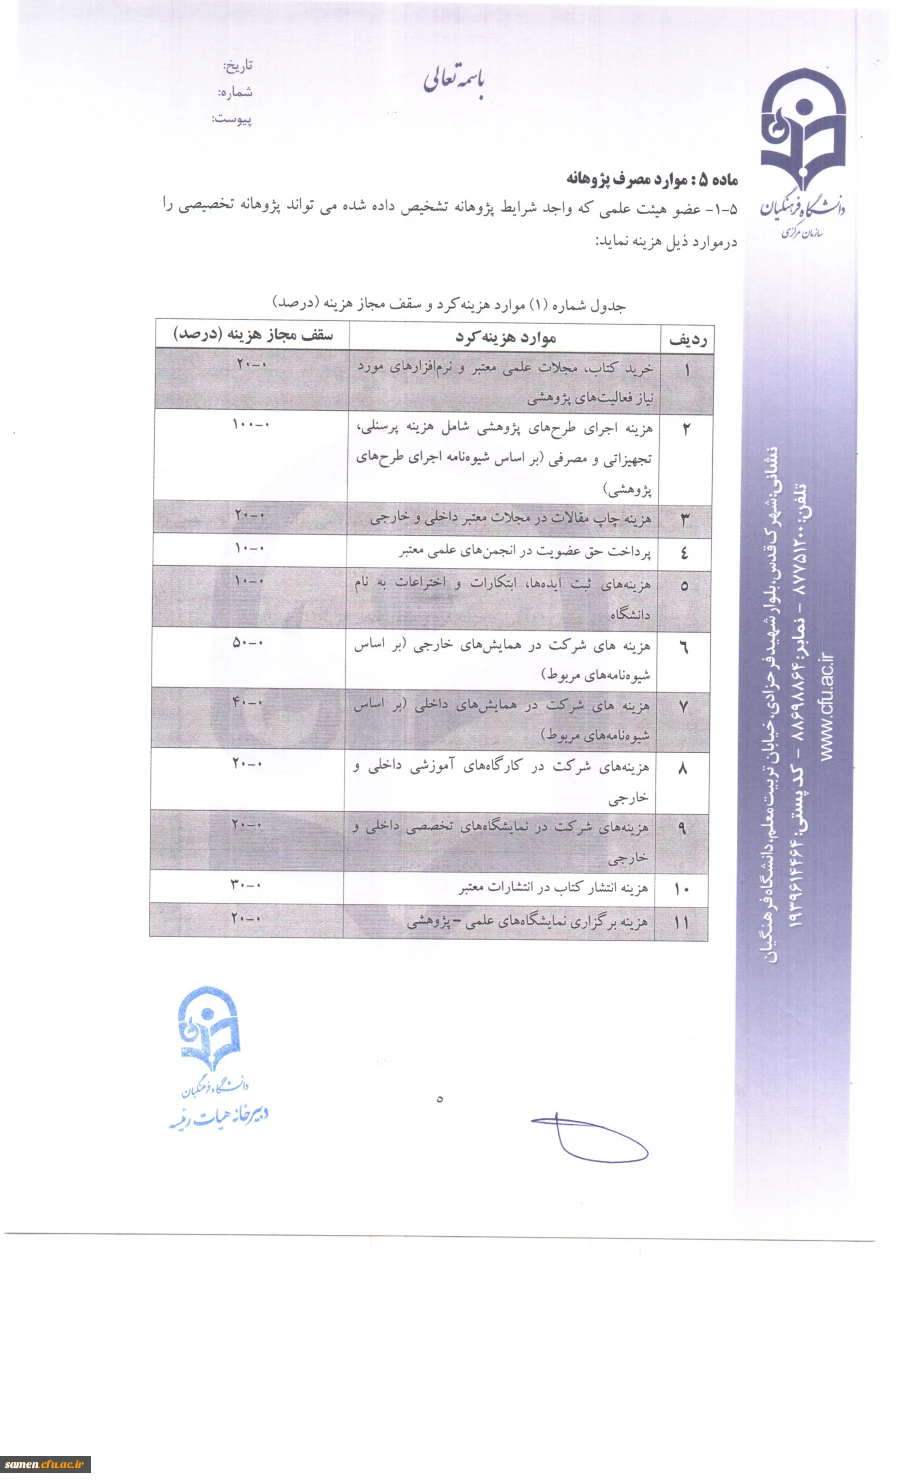 باسمه تعالی
تاریخ:
شماره:
پیوست:
دانشگاه فرهنگیان
سازمان مرکزی
ماده ۵ : موارد مصرف پژوهانه
۵-۱- عضو هیئت علمی که واجد شرایط پژوهانه تشخیص داده شده می تواند پژوهانه تخصیصی را
درموارد ذیل هزینه نماید:
جدول شماره (۱) موارد هزینه‌کرد و سقف مجاز هزینه (درصد)
ردیف موارد هزینه‌کرد سقف مجاز هزینه (درصد)
۱ خرید کتاب، مجلات علمی معتبر و نرم‌افزارهای مورد ۰-۲۰
نیاز فعالیت‌های پژوهشی
۲ هزینه اجرای طرح‌های پژوهشی شامل هزینه پرسنلی، ۰-۱۰۰
تجهیزاتی و مصرفی (بر اساس شیوه‌نامه اجرای طرح‌های
پژوهشی)
۳ هزینه چاپ مقالات در مجلات معتبر داخلی و خارجی ۰-۲۰
٤ پرداخت حق عضویت در انجمن‌های علمی معتبر ۰-۱۰
۵ هزینه‌های ثبت ایده‌ها، ابتکارات و اختراعات به نام ۰-۱۰
دانشگاه
٦ هزینه های شرکت در همایش‌های خارجی (بر اساس ۰-۵۰
شیوه‌نامه‌های مربوط)
۷ هزینه های شرکت در همایش‌های داخلی (بر اساس ۰-۴۰
شیوه‌نامه‌های مربوط)
۸ هزینه‌های شرکت در کارگاه‌های آموزشی داخلی و ۰-۲۰
خارجی
۹ هزینه‌های شرکت در نمایشگاه‌های تخصصی داخلی و ۰-۲۰
خارجی
۱۰ هزینه انتشار کتاب در انتشارات معتبر ۰-۳۰
۱۱ هزینه برگزاری نمایشگاه‌های علمی – پژوهشی ۰-۲۰
نشانی: شهرک قدس، بلوار شهید فرحزادی، خیابان تربیت معلم، دانشگاه فرهنگیان
تلفن: ۸۷۷۵۱۲۰۰ - نمابر: ۸۸۶۹۸۸۶۴ - کد پستی: ۱۹۳۹۶۱۴۴۶۴
www.cfu.ac.ir
دانشگاه فرهنگیان
دبیرخانه هیات رئیسه
۵
samen.cfu.ac.ir